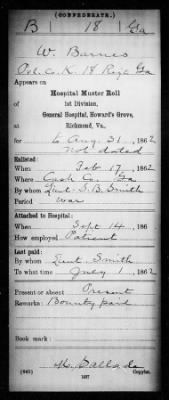 (CONFEDERATE.)
B 18 Ga
W. Barnes
Co. K. 18 Regt Ga
Appears on
Hospital Muster Roll
1st Division,
General Hospital, Howard's Grove,
at
Richmond, Va.,
for to Aug 31, 1862
Not dated
Enlisted:
When Feb 17, 1862
Where Ga
By whom Lieut. S. B. Smith
Period war
Attached to Hospital:
When Sept 14, 186
How employed Patient
Last paid:
By whom Lieut. Smith
To what time July 1, 1862
Present or absent Present
Remarks: Bounty paid
Book mark:
(645) Copyist.